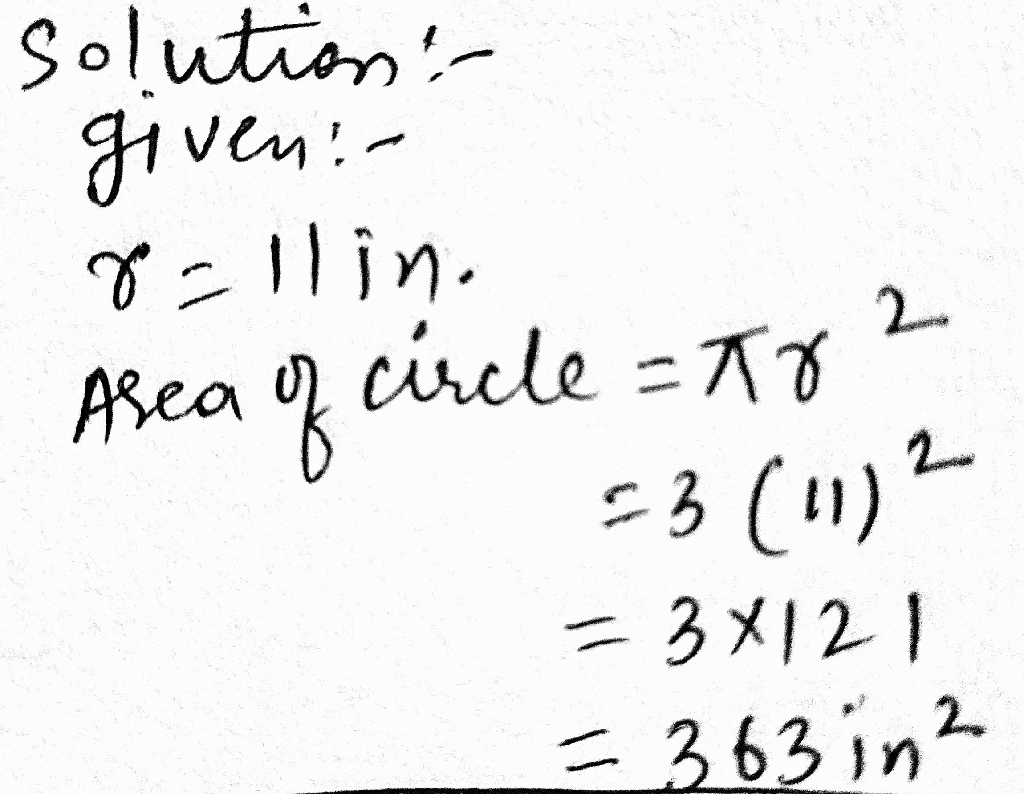 Solution:-
given:-
r = 11 in.
Area of circle = πr²
= 3 (11)²
= 3×121
= 363 in²